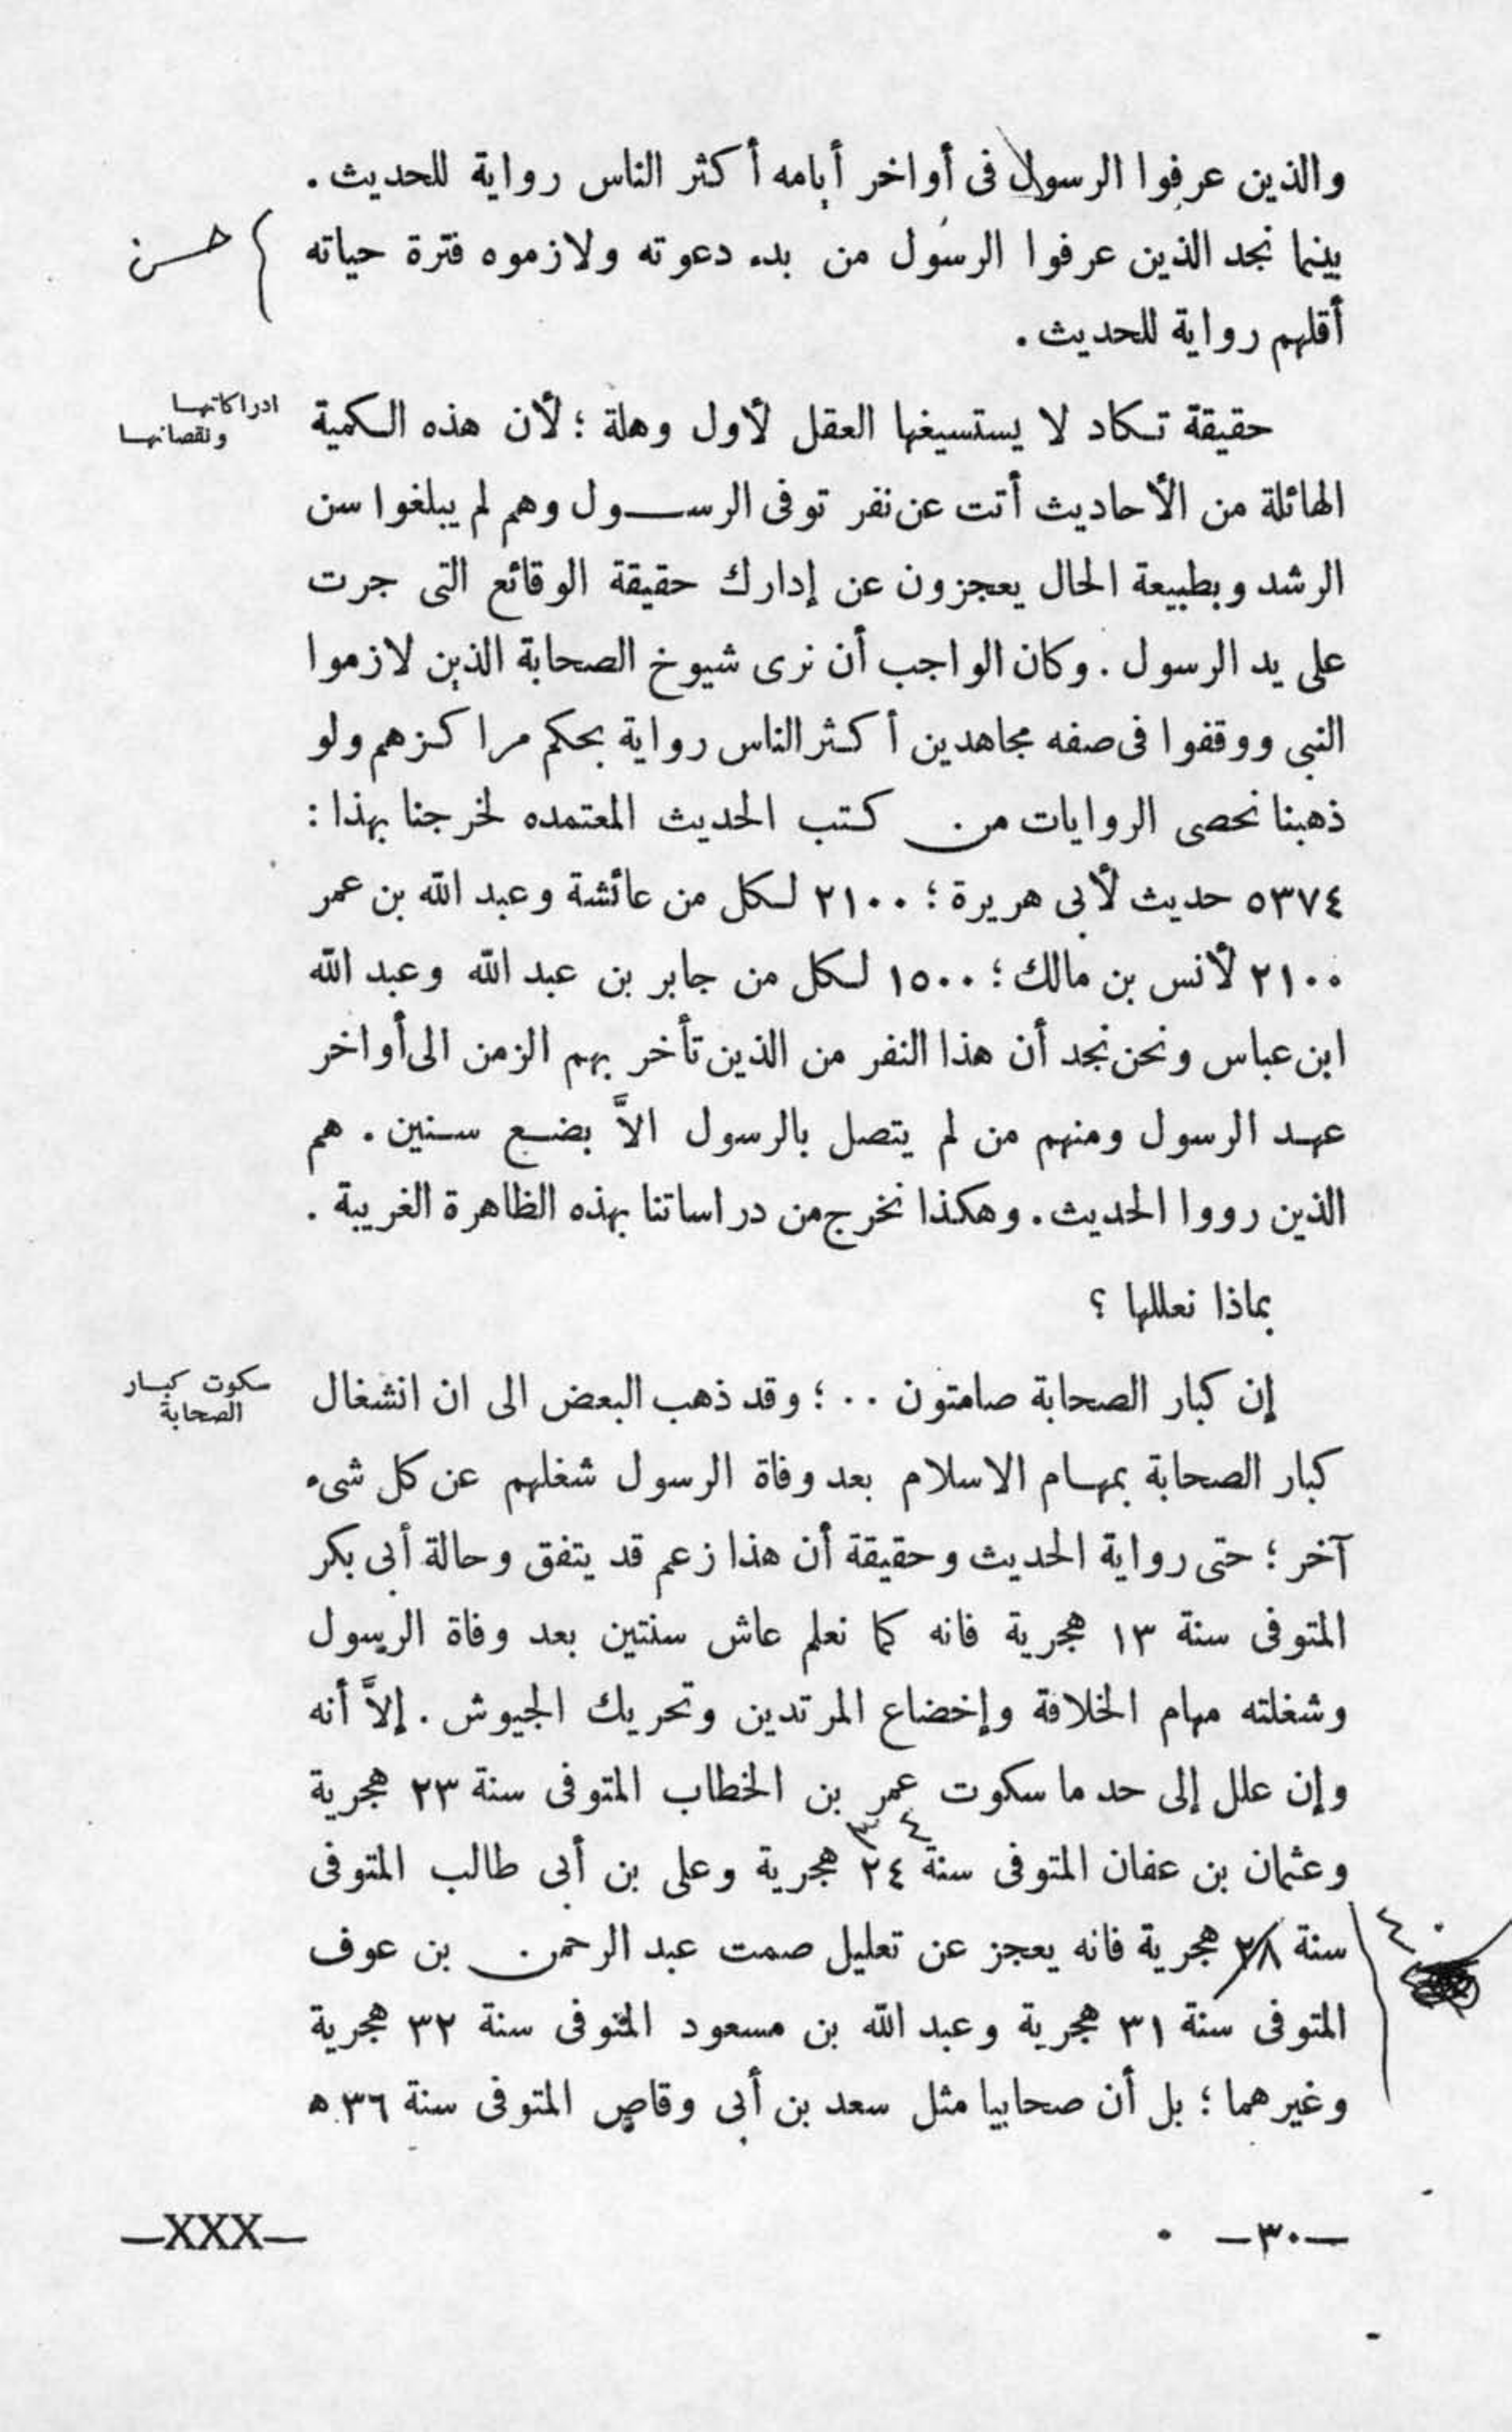 والذين عرفوا الرسول فى أواخر أيامه أكثر الناس رواية للحديث .
بينما نجد الذين عرفوا الرسول من بدء دعوته ولازموه فترة حياته
حسن
أقلهم رواية للحديث .
ادراكاتها
ونقصانها
حقيقة تكاد لا يستسيغها العقل لأول وهلة ؛ لأن هذه الكمية
الهائلة من الأحاديث أتت عن نفر توفى الرســـول وهم لم يبلغوا سن
الرشد وبطبيعة الحال يعجزون عن إدارك حقيقة الوقائع التى جرت
على يد الرسول . وكان الواجب أن نرى شيوخ الصحابة الذين لازموا
النبى ووقفوا فى صفه مجاهدين أكثر الناس رواية بحكم مراكزهم ولو
ذهبنا نحصى الروايات من كتب الحديث المعتمده لخرجنا بهذا :
٥٣٧٤ حديث لأبى هريرة ؛ ٢١٠٠ لكل من عائشة وعبد الله بن عمر
٢١٠٠ لأنس بن مالك ؛ ١٥٠٠ لكل من جابر بن عبد الله وعبد الله
ابن عباس ونحن نجد أن هذا النفر من الذين تأخر بهم الزمن الى أواخر
عهد الرسول ومنهم من لم يتصل بالرسول الاَّ بضع سنين . هم
الذين رووا الحديث . وهكذا نخرج من دراساتنا بهذه الظاهرة الغريبة .
بماذا نعللها ؟
سكوت كبار
الصحابة
إن كبار الصحابة صامتون ٠٠ ؛ وقد ذهب البعض الى ان انشغال
كبار الصحابة بمهام الاسلام بعد وفاة الرسول شغلهم عن كل شىء
آخر ؛ حتى رواية الحديث وحقيقة أن هذا زعم قد يتفق وحالة أبى بكر
المتوفى سنة ١٣ هجرية فانه كما نعلم عاش سنتين بعد وفاة الرسول
وشغلته مهام الخلافة وإخضاع المرتدين وتحريك الجيوش . إلاَّ أنه
وإن علل إلى حد ما سكوت عمر بن الخطاب المتوفى سنة ٢٣ هجرية
٣٤
وعثمان بن عفان المتوفى سنة ٢٤ هجرية وعلى بن أبى طالب المتوفى
سنة ٢٨ هجرية فانه يعجز عن تعليل صمت عبد الرحمن بن عوف
٤٠
المتوفى سنة ٣١ هجرية وعبد الله بن مسعود المتوفى سنة ٣٢ هجرية
وغيرهما ؛ بل أن صحابيا مثل سعد بن أبى وقاص المتوفى سنة ٣٦ ه
—٣٠—
—XXX—